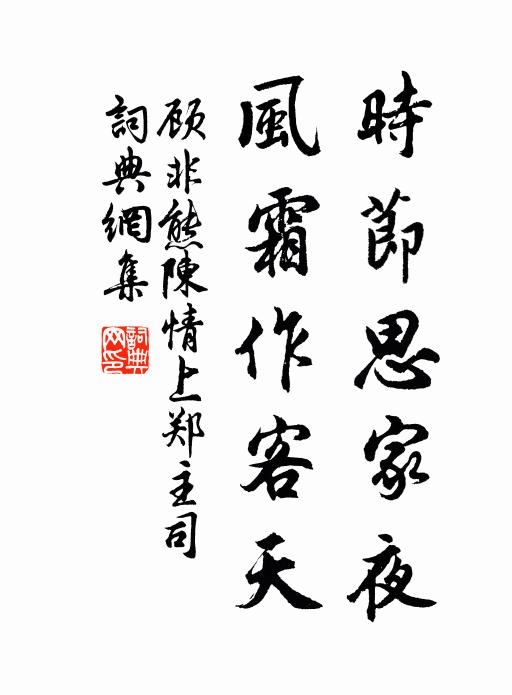 時節思家夜
風霜作客天
顾非熊陳情上郑主司
詞典網集
詞典
网印